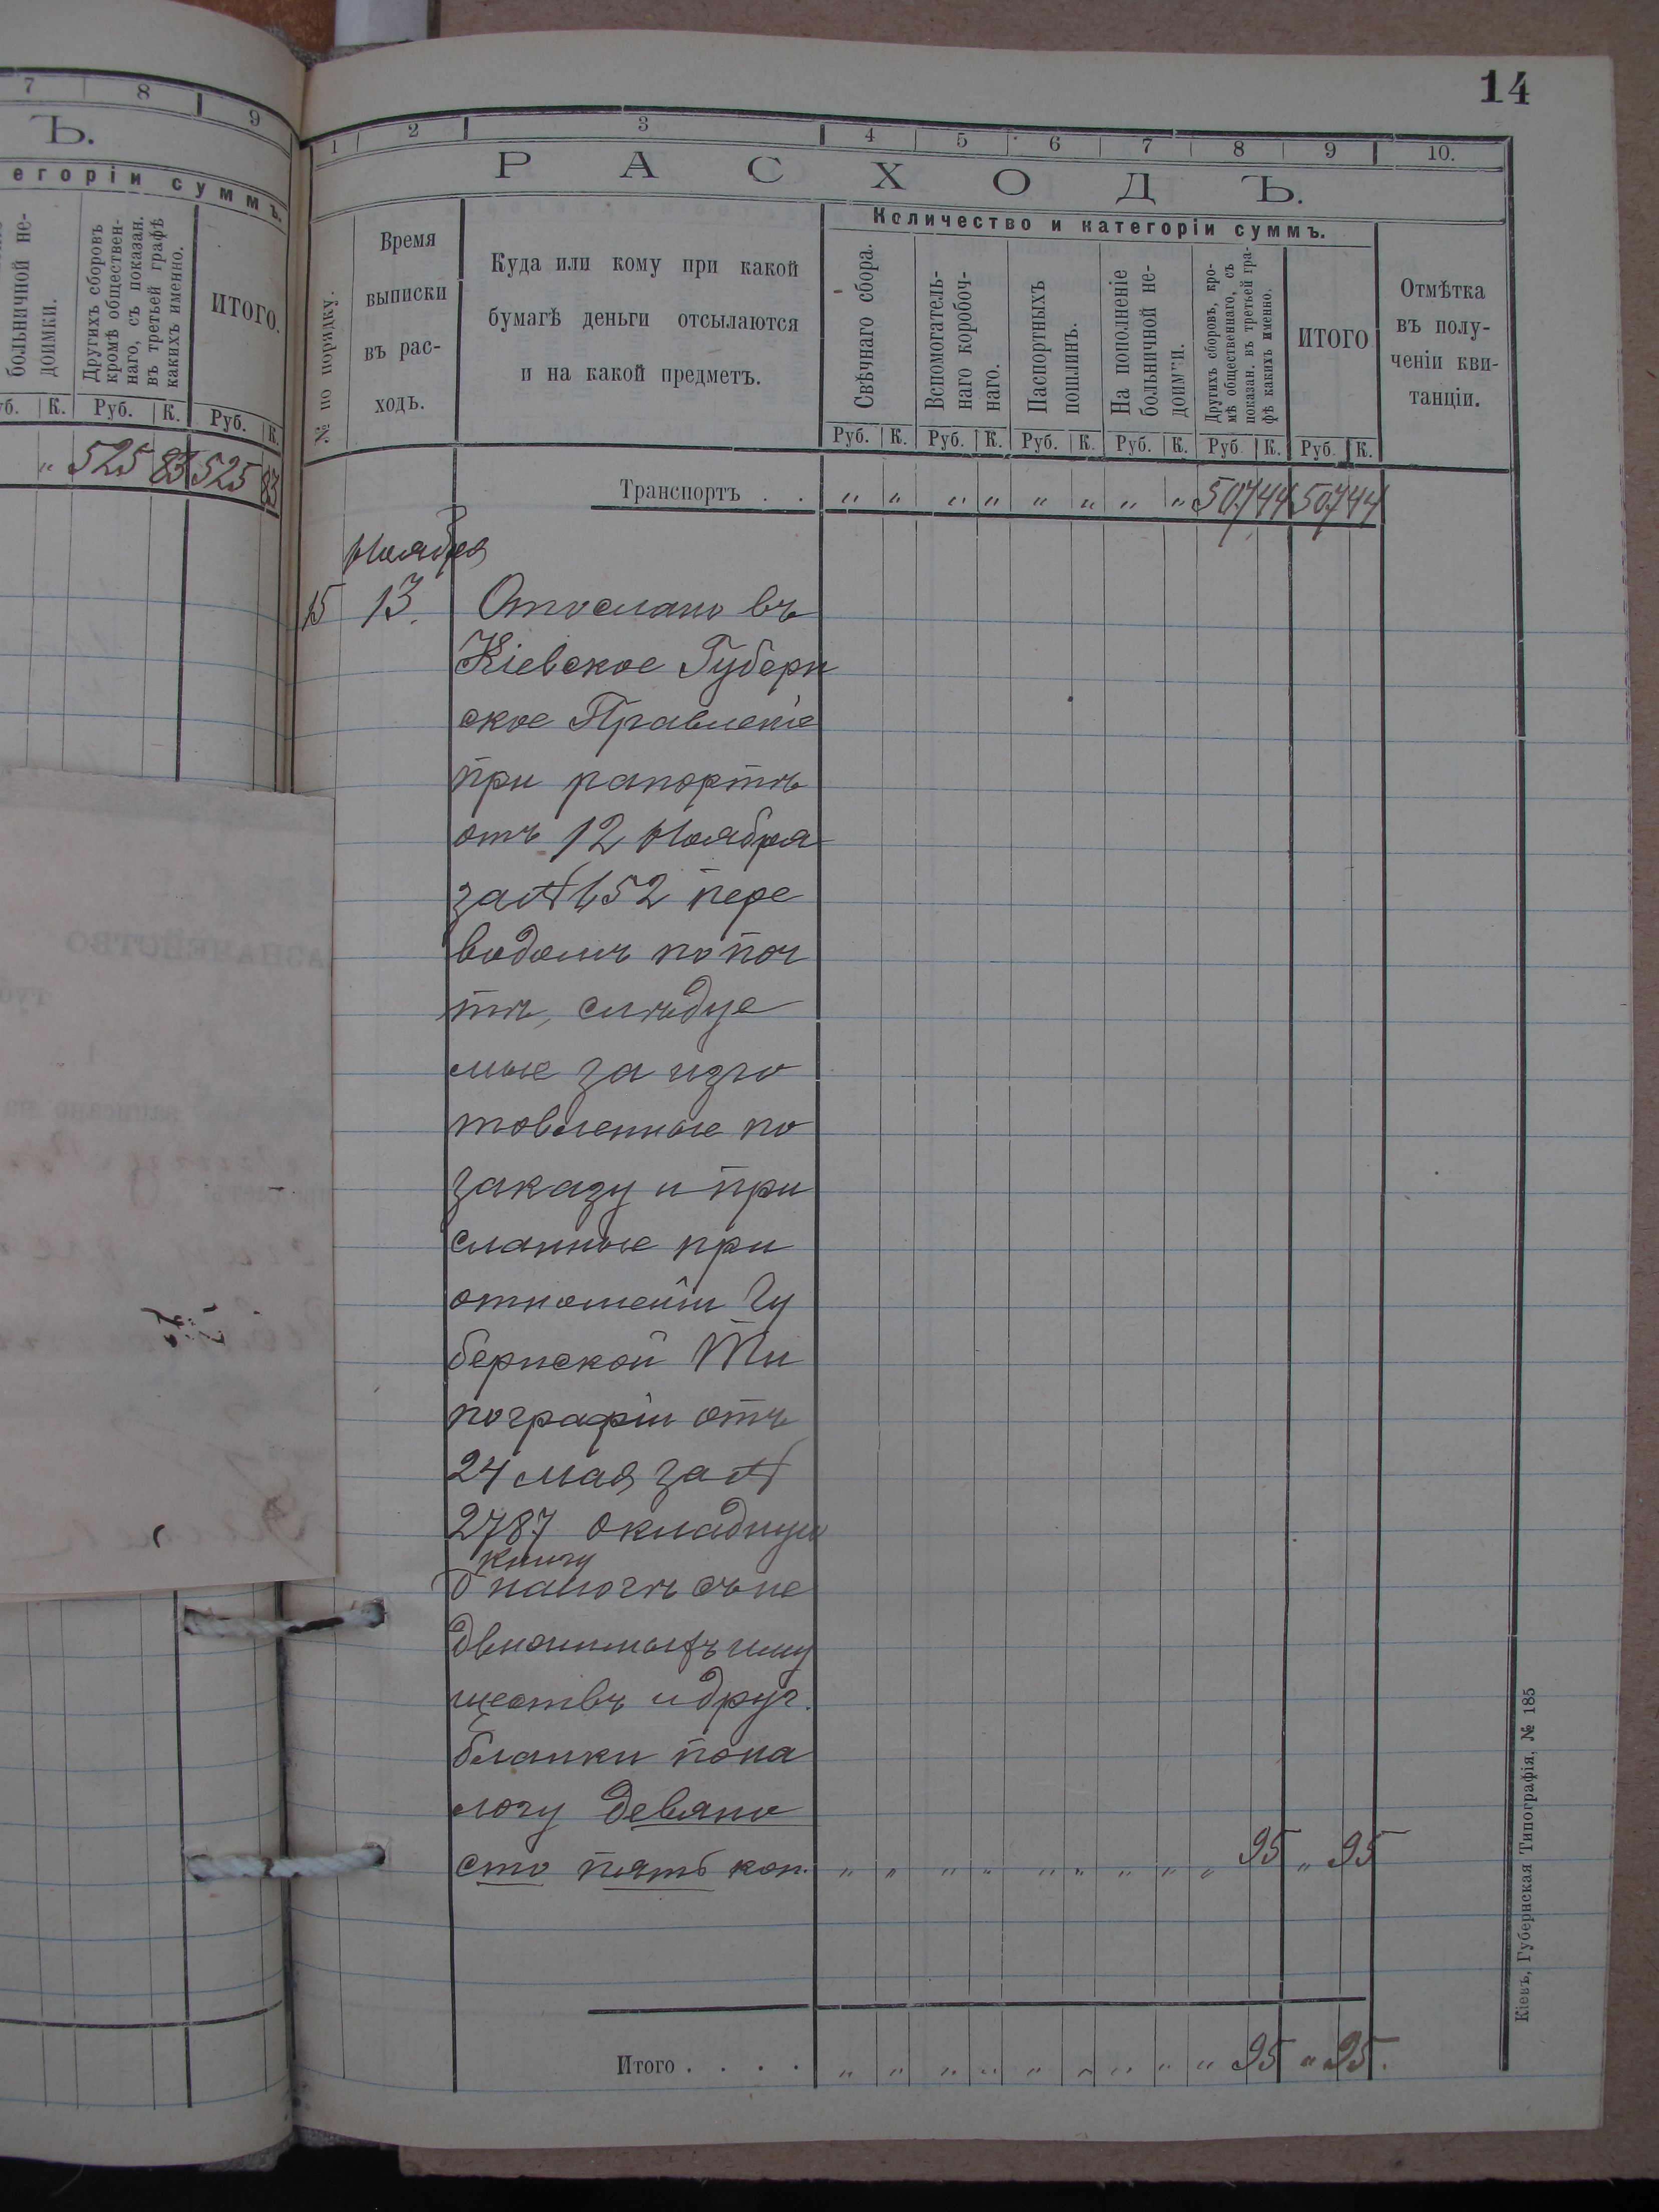 7 8 9
Ъ.
егоріи суммъ.
больничной не-
доимки.
Другихъ сборовъ
кромѣ обществен-
наго, съ показан.
въ третьей графѣ
какихъ именно.
ИТОГО.
уб. К. Руб. К. Руб. К.
„ 525 83 525 83
14
1 2 3 4 5 6 7 8 9 10.
РАСХОДЪ.
№ по порядку.
Время
выписки
въ рас-
ходъ.
Куда или кому при какой
бумагѣ деньги отсылаются
и на какой предметъ.
Количество и категоріи суммъ.
Свѣчнаго сбора.
Вспомогатель-
наго коробоч-
наго.
Паспортныхъ
пошлинъ.
На пополненіе
больничной не-
доимки.
Другихъ сборовъ, кро-
мѣ общественнаго, съ
показан. въ третьей гра-
фѣ какихъ именно.
ИТОГО
Отмѣтка
въ полу-
ченіи кви-
танціи.
Руб. К. Руб. К. Руб. К. Руб. К. Руб. К. Руб. К.
Транспортъ . . „ „ „ „ „ „ „ „ 507 44 507 44
Ноября
15 13. Отослано въ
Кіевское Губерн
ское Правленіе
при рапортѣ
отъ 12 Ноября
за № 652 пере
водомъ по поч
тѣ, слѣдуе
мые за изго
товленные по
заказу и при
сланные при
отношеніи Гу
бернской Ти
пографіи отъ
24 мая за №
2787 окладную
книгу
о налогѣ съ не
движимыхъ иму
ществъ и друг.
бланки по на
логу девяно
сто пять коп. „ „ „ „ „ „ „ „ „ 95 „ 95
Итого . . . . „ „ „ „ „ „ „ „ „ 95 „ 95.
Кіевъ, Губернская Типографія, № 185